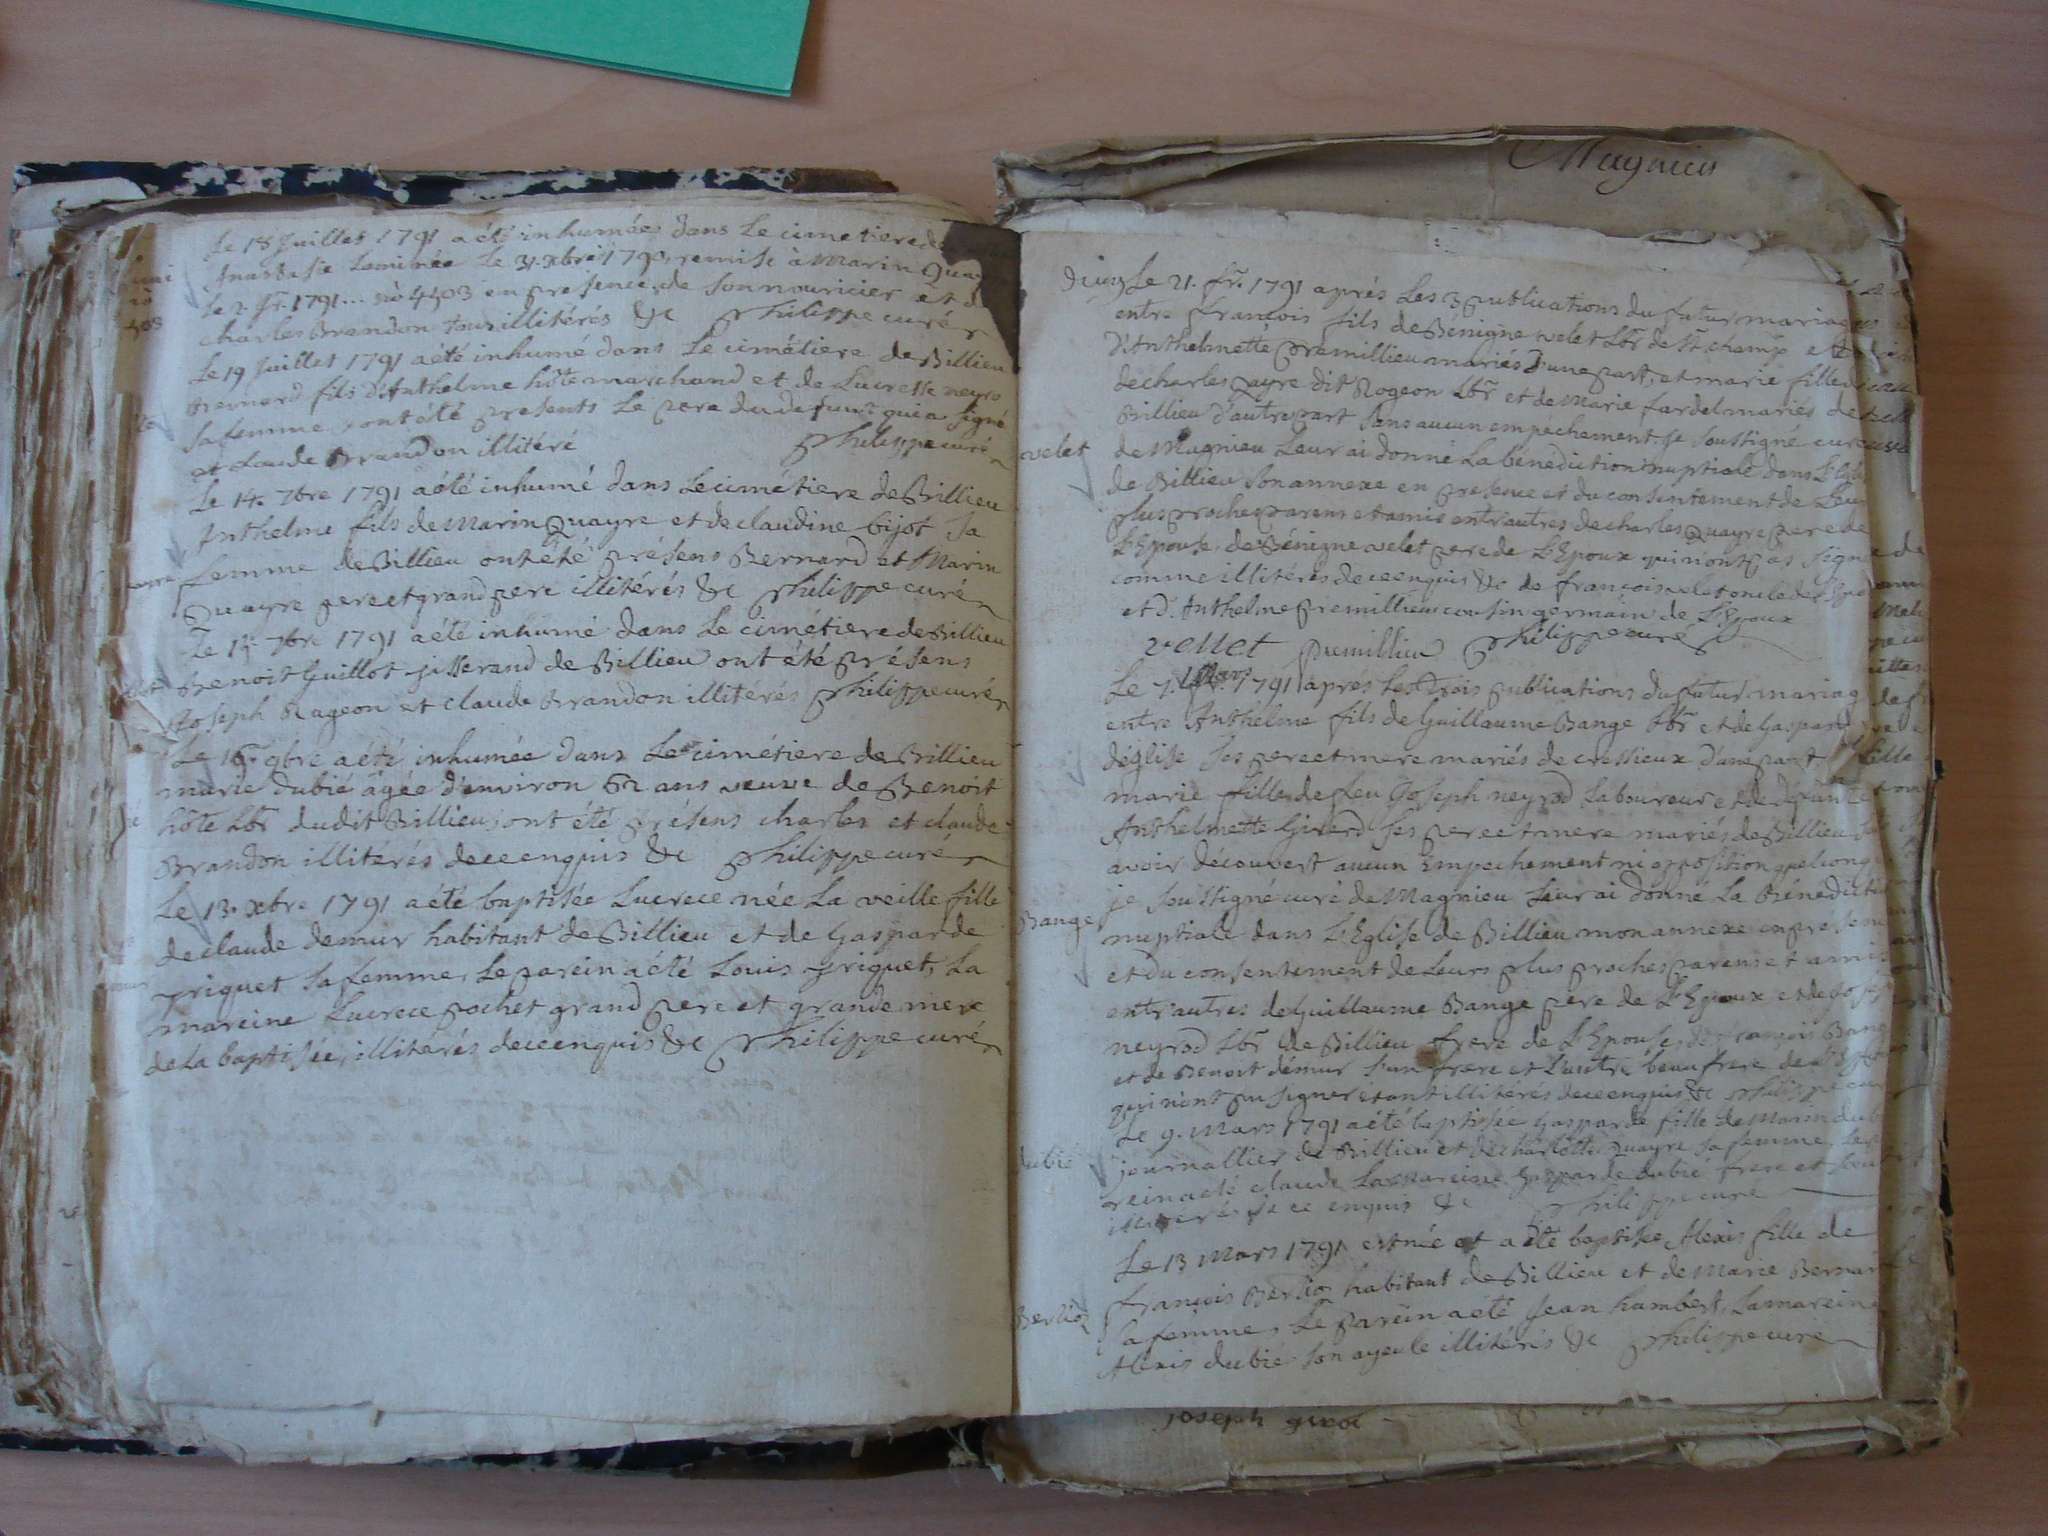 Le 18 Juillet 1791 a été inhumée dans Le cimetiere de
Anastasie Le 31. xbre 1790, remise à Marin Quay
Le 2. 1791 ... no 4403 en presence de son nouricier et d
charles Brandon tous illitérés &c philippe curé
Le 19 Juillet 1791 a été inhumé dans Le cimétiere de Billieu
Bernard fils d'Anthelme hôte marchand et de Lucresse neyro
sa femme, ont été presents Le pere du defunt qui a signé
et Claude Brandon illitéré philippe curé
Le 14. 7bre 1791 a été inhumé dans Le cimétiere de Billieu
Anthelme fils de Marin Quayre et de claudine bijot sa
femme de Billieu ont été présens Bernard et Marin
Quayre pere et grand pere illitérés &c philippe curé
Le 7bre 1791 a été inhumé dans Le cimétiere de Billieu
Benoit Guillot tisserand de Billieu ont été présens
Joseph Rageon et claude Brandon illitérés philippe curé
Le 16. 9bre a été inhumée dans Le cimétiere de Billieu
marie dubié âgée d'environ 62 ans veuve de Benoit
hôte Lbr dudit Billieu, ont été présens charles et claude
Brandon illitérés de ce enquis &c philippe curé
Le 13. xbre 1791 a été baptisée Lucrece née La veille fille
de claude demur habitant de Billieu et de Gasparde
triquet sa femme, Le parein a été Louis triquet, La
mareine Lucrece pochet grand pere et grande mere
de La baptisée, illiterés de ce enquis &c philippe curé
Magnieu
Le 21. fr. 1791 aprés Les 3 publications du futur mariage
entre françois fils de Bénigne velet Lbr de St champ et
d'Anthelmette premillieu mariés d'une part, et marie fille
de charles quayre dit Rogeon Lbr et de Marie fardel mariés de
Billieu d'autre part sans aucun empechement je soussigné curé
velet
de Magnieu Leur ai donné La bénédiction nuptiale dans L'Egli
de Billieu son annexe en presence et du consentement de Leurs
plus proches parens et amis entr'autres de charles quayre pere de
L'Epouse, de Bénigne velet pere de L'Epoux qui n'ont pas signé
comme illitérés de ce enquis &c de françois velet oncle de L'Epo
et d'Anthelme premillieu cousin germain de L'Epoux
vellet premillieu philippe curé
Le 7. Mars 1791 aprés Les trois publications du futur mariag
entre Anthelme fils de Guillaume Bange Lbr et de Gasparde
déglise ses pere et mere mariés de cressieux d'une part
marie fille de feu Joseph neyrod Laboureur et de défunte
Anthelmette Girerd ses pere et mere mariés de Billieu
avoir découvert aucun Empechement ni opposition quelconq
je soussigné curé de Magnieu Leur ai donné La Bénédicti
Bange
nuptiale dans L'Eglise de Billieu mon annexe en présen
et du consentement de Leurs plus proches parens et amis
entr'autres de Guillaume Bange pere de L'Epoux et de Jos
neyrod Lbr de Billieu frere de L'Epouse, de françois Bang
et de Benoit démur L'un frere et L'autre beau frere de
qui n'ont pu signer étant illitérés de ce enquis &c philippe cur
Le 9. Mars 1791 a été baptisée Gasparde fille de Marin dub
dubié
journallier de Billieu et de charlotte quayre sa femme, Le pa
rein a été claude La mareine Gasparde dubié frere et soeur
illiterés de ce enquis &c philippe curé
Le 13 Mars 1791 est née et a été baptisée Alexis fille de
françois Berlioz habitant de Billieu et de Marie Bernard
Berlioz
sa femme, Le parein a été Jean humbert, La mareine
Alexis dubié son ayeule illitérés &c philippe curé
Joseph girod